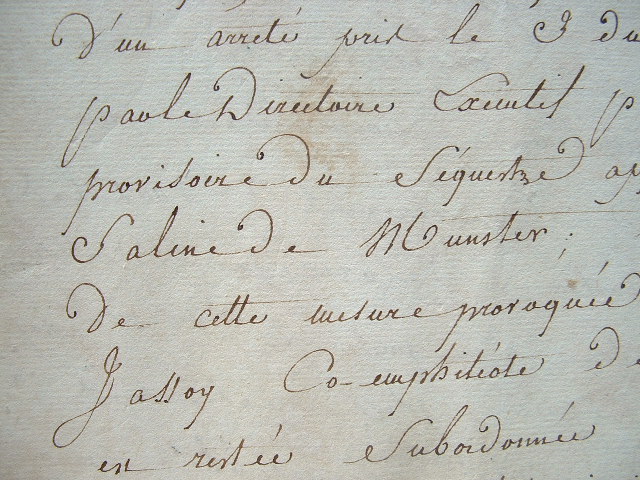 D'un arreté pris le 3 du
par le Directoire Executif p
provisoire du Séquestre ap
Saline de Munster.
de cette mesure provoquée
Jassoy Co-emphitéote de
en restée Subordonnée